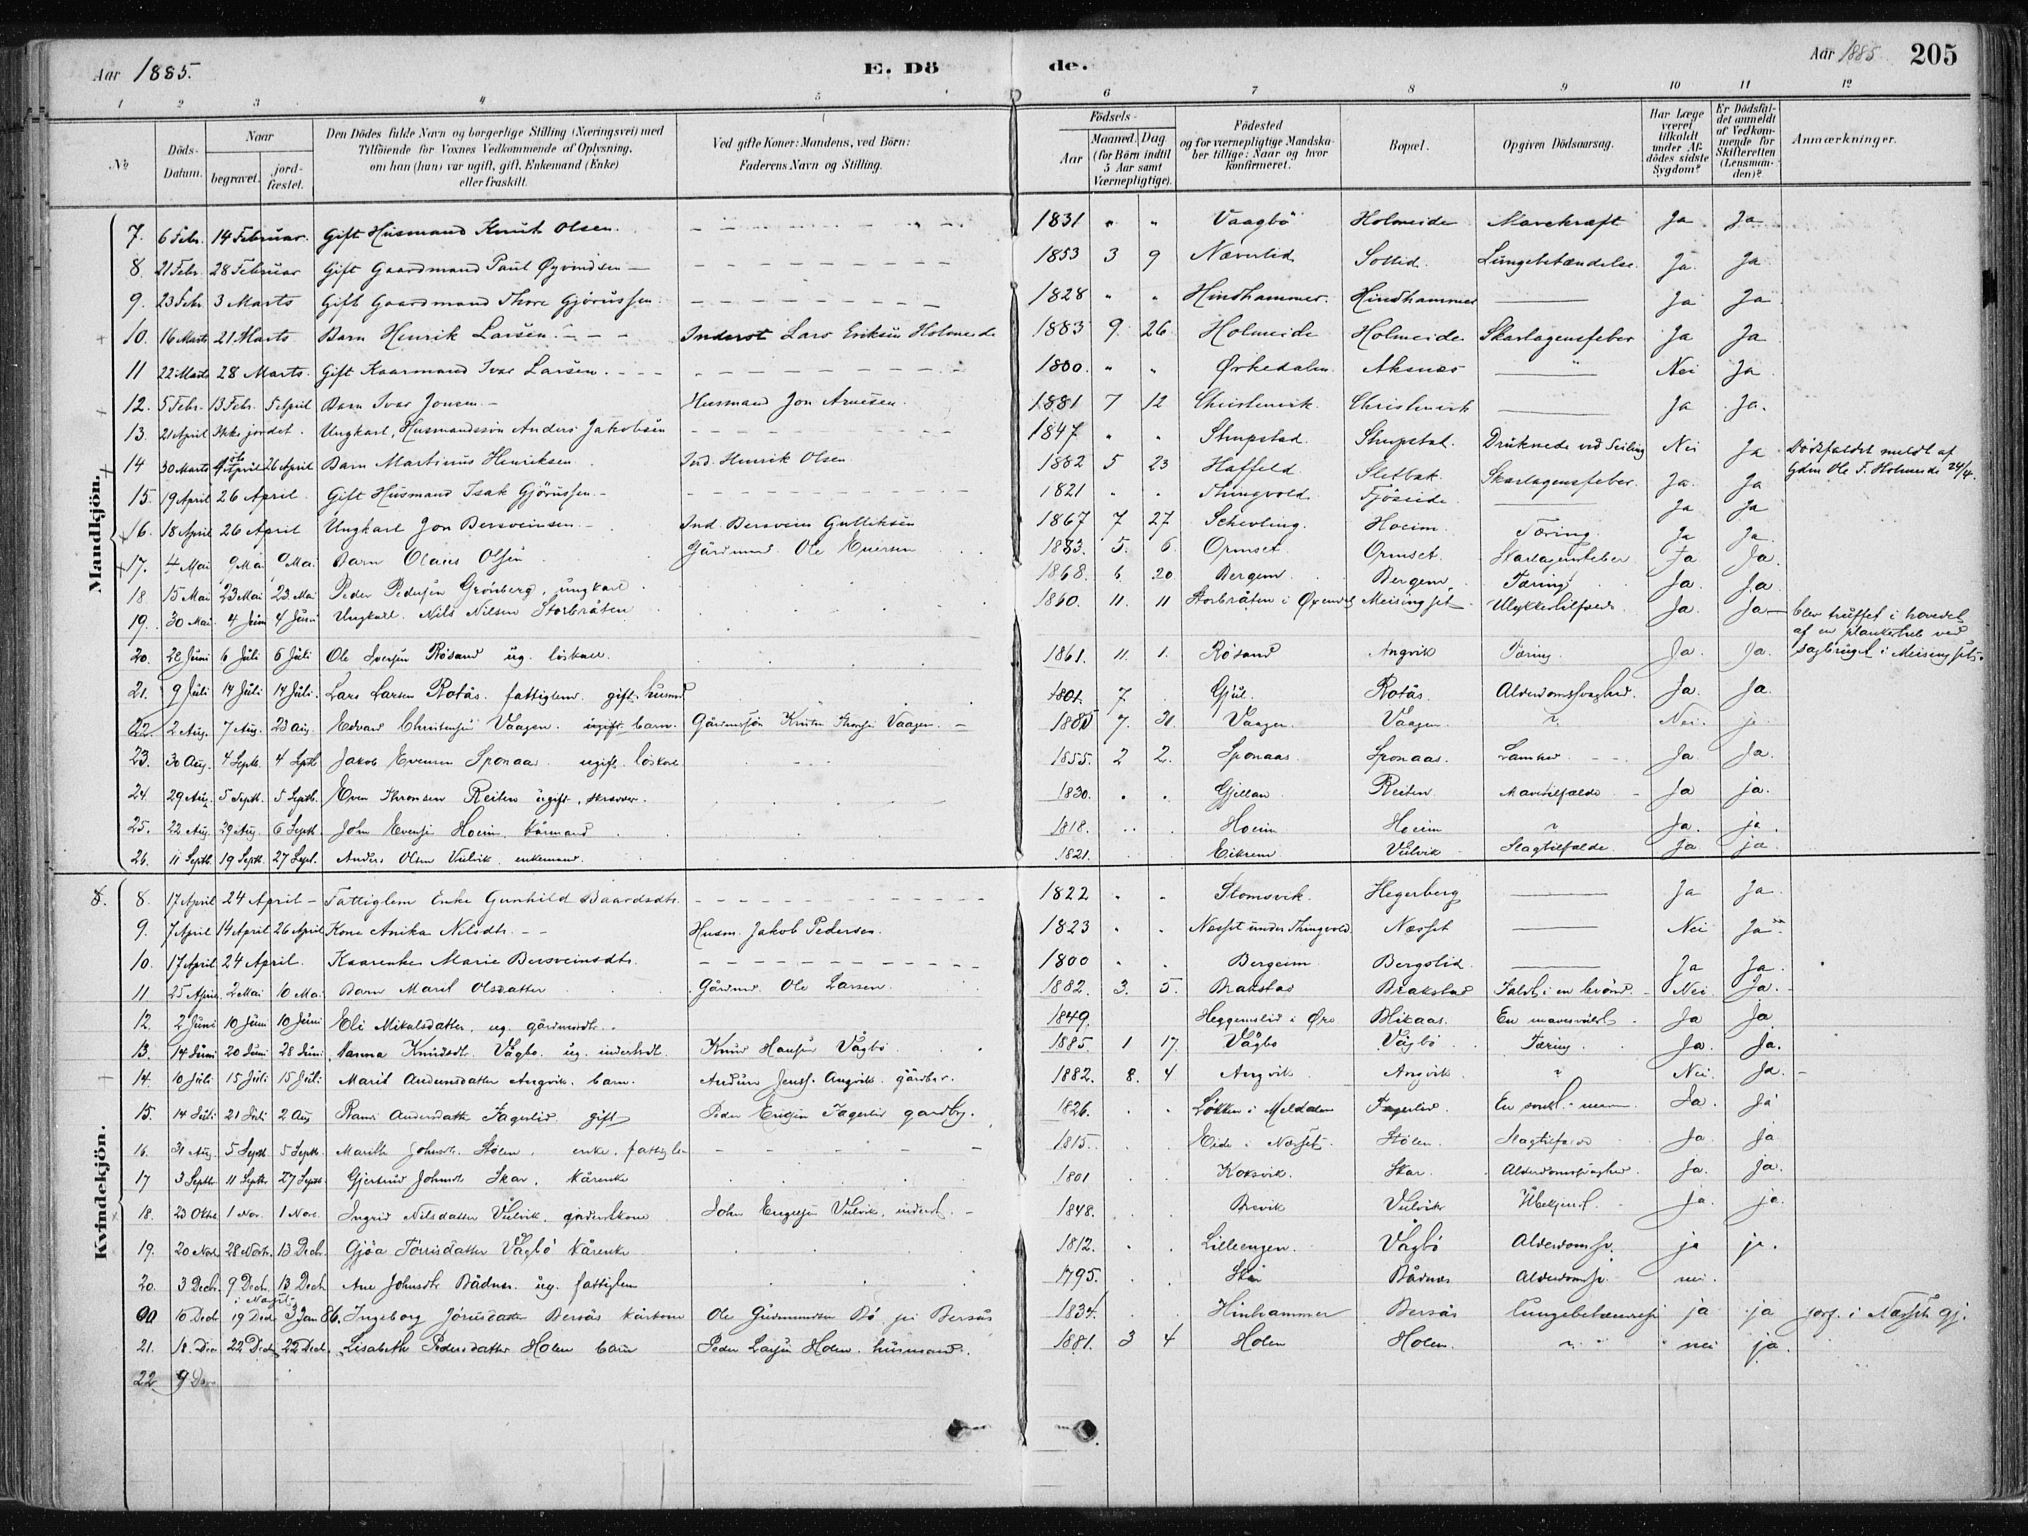 Aar 1885. E. Dö de. Aar 1885 205
1 2 3 4 5 6 7 8 9 10 11 12
No
Döds-Datum.
Naar
begravet.
jord-fæstet.
Den Dödes fulde Navn og borgerlige Stilling (Næringsvei) med
Tilföiende for Voxnes Vedkommende af Oplysning,
om han (hun) var ugift, gift, Enkemand (Enke)
eller fraskilt.
Ved gifte Koner: Mandens, ved Börn:
Faderens Navn og Stilling.
Födsels-
Aar
Maaned. Dag
(for Börn indtil
5 Aar samt
Værnepligtige).
Födested
og for værnepligtige Mandska-
ber tillige: Naar og hvor
konfirmeret.
Bopæl.
Opgiven Dödsaarsag.
Har Læge
været
tilkaldt
under Af-
dödes sidste
Sygdom?
Er Dödsfal-
det anmeldt
af Vedkom-
mende for
Skifteretten
(Lensman-
den)?
Anmærkninger.
Mandkjön.
7. 6 Febr. 14 Februar. Gift Husmand Knut Olsen. 1831 " " Vaagbö Holmeide Mavekræft Ja Ja
8. 21 Febr. 28 Februar Gift Gaardmand Paul Øyvindsen 1853 3 9 Næverlid Sollid Lungebetændelse Ja. Ja
9. 23 Febr. 3 Marts Gift Gaardmand Thore Gjørussen. 1828 " " Hindhammer. Hindhammer Ja Ja
10. 16 Marts 21 Marts Barn Henrik Larsen. Inderst Lars Eriksen Holmeide 1883 9. 26 Holmeide Holmeide Skarlagensfeber Ja Ja
11 22 Marts 28 Marts. Gift Kaarmand Ivar Larsen. 1800. " " Ørkedalen Aksnæs " Nei Ja
12. 5 Febr. 13 Febr. 5 April Barn Ivar Jonsen Husmand Jon Arnesen. 1881 7 12 Christenvik. Christenvik Ja Ja.
13. 21 April Ikke jordet. Ungkarl, Husmandssön Anders Jakobsen 1847 " " Stupstad. Stupstad. Druknede ved Seiling Nei Ja Dödsfaldet meldt af
Gdm Ole T. Holmeide 24/4.
14 30 Marts 4de April 26 April Barn Martinus Henriksen Ind. Henrik Olsen 1882 5 23 Haffeld Sletbak Skarlagensfeber. Ja. Ja
15. 19 April 26 April. Gift Husmand Isak Gjørussen. 1821 " . Thingvold. Fjöseide Ja Ja
16. 18 April 26 April Ungkarl Jon Bersveinsen. Ind. Bersvein Gulliksen 1867 7 27 Schevling. Hoeim. Tæring. Ja Ja.
17. 4 Mai 9 Mai 9 Mai Barn Olaus Olsen Gårdmd. Ole Evensen 1883. 5. 6 Ormset. Ormset. Skarlagensfeber Ja Ja.
18. 15 Mai 23 Mai 23. Mai Peder Pedersen Grønberg, ungkarl 1868. 6. 20 Bergem Bergem. Tæring Ja. Ja
19. 30 Mai 4 Juni 4 Juni Ungkarl. Nils Nilsen Storbråten. 1860. 11. 11 Storbråten i Øxendal Meisingset Ulykkestilfælde. Ja. Ja— blev truffet i hovedet
af en planke ved
sagbruget i Meisingset.
20. 28 Juni 6 Juli 6 Juli Ole Iversen Røsand ug. löskarl 1861. 11. 1. Røsand Angvik Tæring Ja. Ja.
21. 9 Juli 14 Juli 14 Juli. Lars Larsen Rotås. fattiglem. gift. husmd 1801. 7 Gjul. Rotås. Alderdomssvaghed. Ja. Ja.
22 2 Aug. 7 Aug. 23 Aug. Edvard Christensen Vaagen. ugift barn. Gårdmssøn Kristen Vaagen. 1885 7. 31. Vaagen. Vaagen. " Nei. ja
23. 30 Aug. 4 Septb. 4 Septb Jakob Evensen Sponaas ugift. löskarl 1855. 2 2. Sponaas. Sponaas. Ja Ja.
24 29 Aug. 5 Septb. 5 Septb. Even Thronsen Reiten ugift, skræder. 1830. . . Gjellan. Reiten. Mavetilfælde Ja ja.
25. 22 Aug. 29 Aug. 6 Septb. John Evensen Hoeim, kårmand 1818. . . Hoeim Hoeim " Ja. ja
26. 11 Septb. 19 Septb. 27 Sept. Anders Olsen Vulvik. enkemand. 1821. Eikrem Vulvik Slagtilfælde. Ja ja.
Kvindekjön.
8. 8. 17 April 24 April Fattiglem Enke Gunhild Baardsdtr. 1822 " " Stomsvik. Hegerberg Ja Ja.
9. 7 April 14 April 26 April Kone Anika Nilsdtr. Husm. Jakob Pedersen. 1823 " " Næsset under Thingvold. Næsset Nei Ja
10. 17 April 24 April. Kaarenke Marie Bersveinsdtr. 1800 " . Bergeim. Bergslid Ja Ja.
11 25 April 2 Mai 10 Mai Barn Marit Olsdatter Gårdmd Ole Larsen 1882. 3. 5. Brakstad Brakstad Faldt i en brönd. Nei. Ja.
12. 2 Juni 10 Juni 10 Juni Eli Mikalsdatter. ug. gårdmdtr. 1849. Heggemslid i Øre Blikaas. En mavesvulst Ja Ja
13. 14 Juni 20 Juni 28 Juni Knudsdt. Vågbø. ug. inderstdt. Knud Hansen Vågbø 1885. 1 17. Vågbø Vågbø Tæring. Ja. Ja.
14. 10 Juli 15 Juli 15 Juli Marit Andunsdatter Angvik. barn. Andun Jenss. Angvik. gårdbr. 1882. 8. 4 Angvik. Angvik. " Nei. Ja.
15. 14 Juli 21 Juli 2 Aug Andersdatter Fagerlid. gift Peder Eriksen Fagerlid gardbr. 1826. . . Løkken i Meldalen Fagerlid. Ja. Ja
16. 31 Aug. 5 Septb 5 Septb. Marith Johnsdt. Stølen. enke. fattiglem 1815. . . Eide i Næsset. Stølen. Slagtilfælde Ja. Ja
17 3 Septb 11 Septbr 27 Septb. Gjertrud Johnsdt Skar. kårenke 1801 . . Koksvik. Skar. Alderdomssvaghed. Ja. Ja.
18. 23 Oktb. 1 Nov. 1 Nov. Ingrid Nilsdatter Vulvik. inderstkone John Engelsen Vulvik, inderst. 1848. . . Brevik Vulvik Ubekjendt. Ja. ja.
19. 20 Novb 28 Novb. 13 Decb. Gjøa Tørrisdatter Vågbø kårenke 1812. Lilleengen. Vågbø Alderdomssv. ja ja.
20. 3 Decb. 9 Decb. 13 Decb Ane Johnsdtr Bådnes. ug. fattiglem 1795. . . Bådnes Alderdomssv. nei.
i Næsset
20 10 Decb 19 Decb 3 Jan 86. Ingeborg Jörusdatter Bersås kårkone Ole Gudmundsen Bø på Bersås 1834. . . Hinhammer Bersås Lungebetændelse ja ja jorf. i Næsset gj.
21. 18. Decb 22 Decb. 22 Decb. Lisabeth Pedersdatter Holen barn Peder Larsen Holen. husmand. 1881. 3 4 Holen Holen. " nei ja.
22 9 Dec